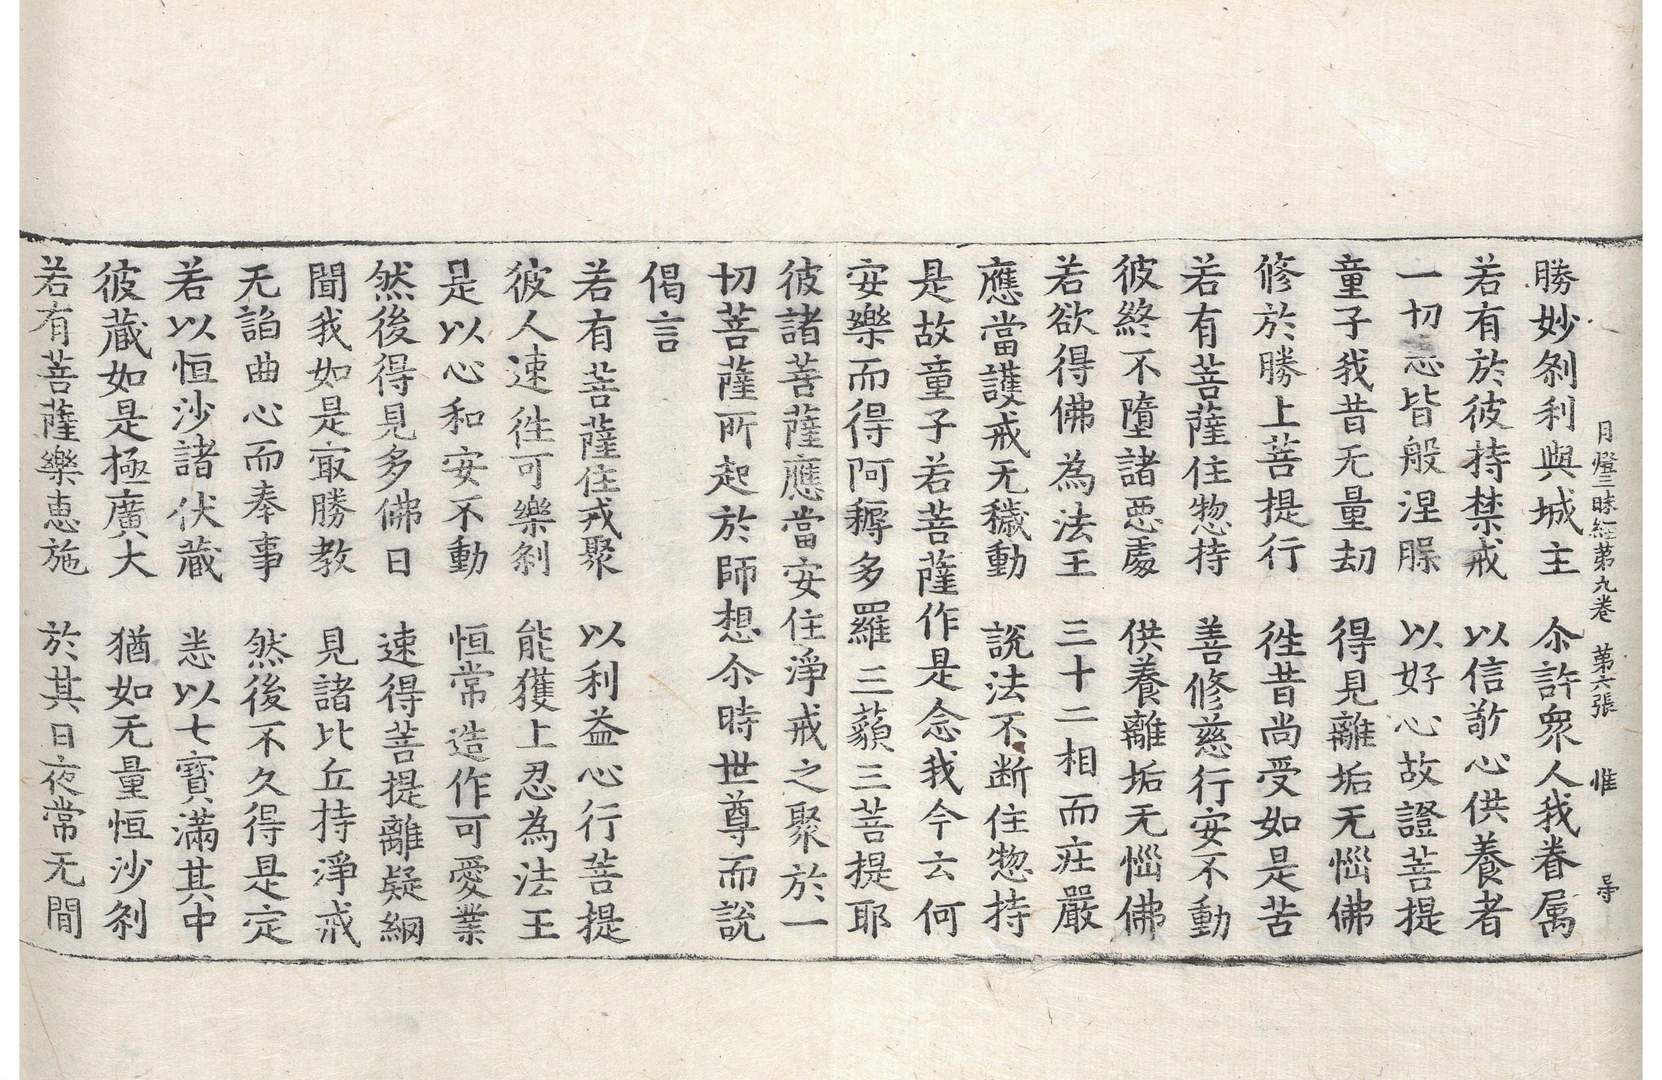 月燈三昧經第九卷 第六張 惟 㝵
勝妙刹利與城主 尒許衆人我眷属
若有於彼持禁戒 以信敬心供養者
一切悉皆般涅槃 以好心故證菩提
童子我昔无量劫 得見離垢无惱佛
修於勝上菩提行 徃昔尚受如是苦
若有菩薩住惣持 善修慈行安不動
彼終不墮諸惡處 供養離垢无惱佛
若欲得佛為法王 三十二相而庄嚴
應當護戒无穢動 說法不断住惣持
是故童子若菩薩作是念我今云何
安樂而得阿耨多羅三藐三菩提耶
彼諸菩薩應當安住淨戒之聚於一
切菩薩所起於師想尒時世尊而說
偈言
若有菩薩住戒聚 以利益心行菩提
彼人速徃可樂刹 能獲上忍為法王
是以心和安不動 恒常造作可愛業
然後得見多佛日 速得菩提離疑網
聞我如是㝡勝教 見諸比丘持淨戒
无諂曲心而奉事 然後不久得是定
若以恒沙諸伏藏 悉以七寶滿其中
彼藏如是極廣大 猶如无量恒沙刹
若有菩薩樂惠施 於其日夜常无間